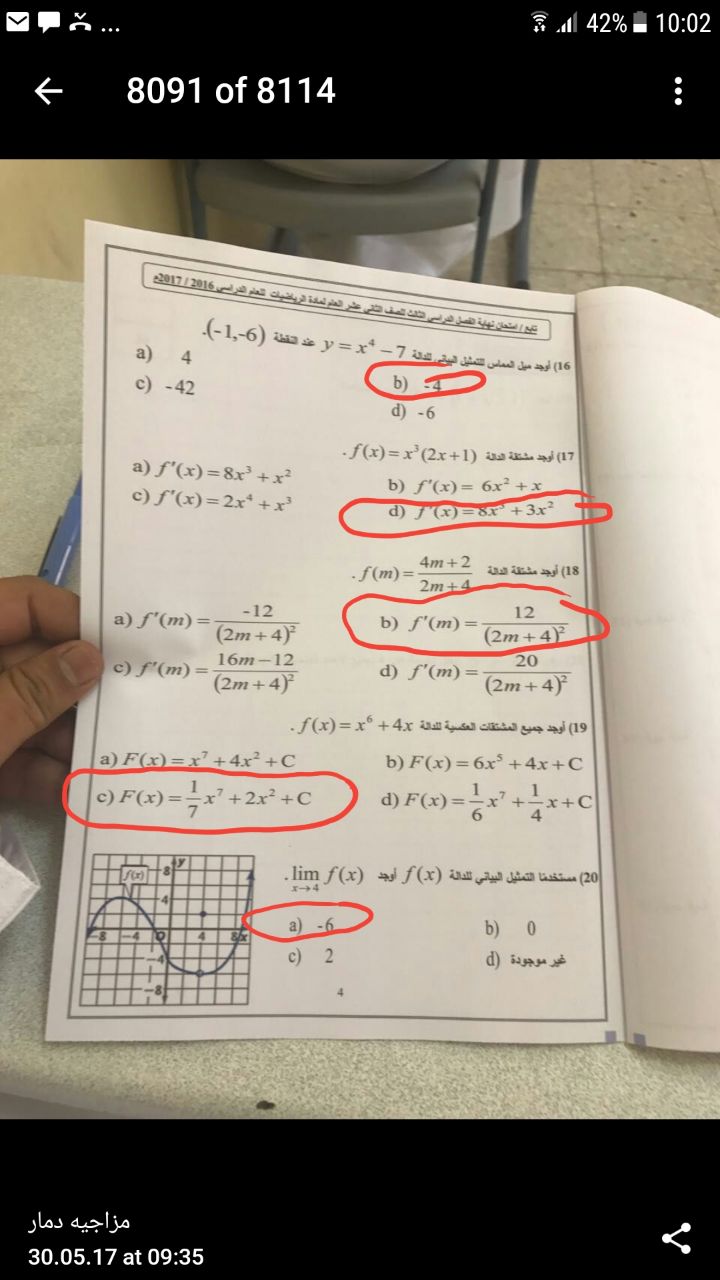 ... 42% 10:02
8091 of 8114
تابع / امتحان نهاية الفصل الدراسي الثالث للصف الثاني عشر العام لمادة الرياضيات للعام الدراسي 2016 / 2017م
16) أوجد ميل المماس للتمثيل البياني للدالة y = x⁴ − 7 عند النقطة (-1,-6).
a) 4 b) -4
c) -42 d) -6
17) أوجد مشتقة الدالة f(x) = x³(2x+1) .
a) f'(x) = 8x³ + x² b) f'(x) = 6x² + x
c) f'(x) = 2x⁴ + x³ d) f'(x) = 8x³ + 3x²
18) أوجد مشتقة الدالة f(m) = (4m+2)/(2m+4) .
a) f'(m) = -12/(2m+4)² b) f'(m) = 12/(2m+4)²
c) f'(m) = (16m−12)/(2m+4)² d) f'(m) = 20/(2m+4)²
19) أوجد جميع المشتقات العكسية للدالة f(x) = x⁶ + 4x .
a) F(x) = x⁷ + 4x² + C b) F(x) = 6x⁵ + 4x + C
c) F(x) = 1/7 x⁷ + 2x² + C d) F(x) = 1/6 x⁷ + 1/4 x + C
20) مستخدمًا التمثيل البياني للدالة f(x) أوجد lim x→4 f(x) .
a) -6 b) 0
c) 2 d) غير موجودة
f(x) 8 y
4
-8 -4 O 4 8 x
-4
-8
4
مزاجيه دمار
30.05.17 at 09:35